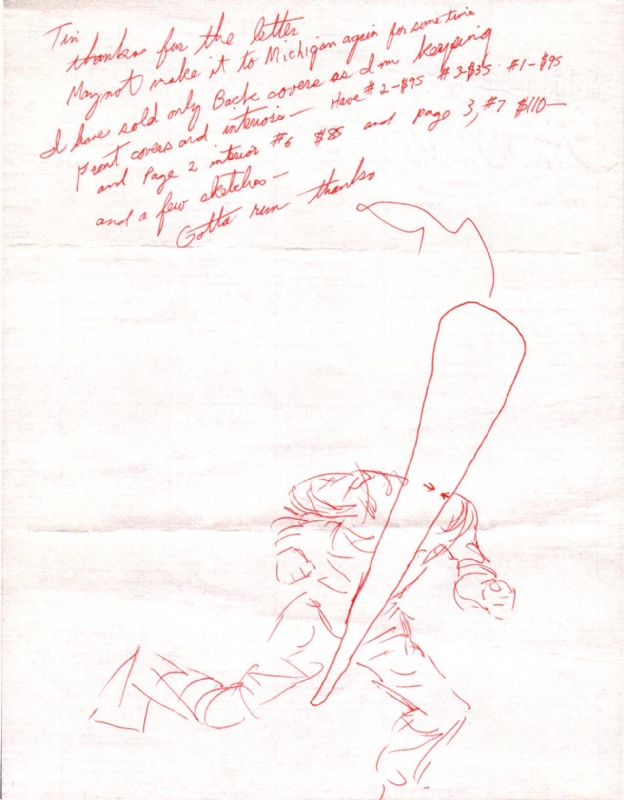 Tim
thanks for the letter
May not make it to Michigan again for some time
I have sold only Back covers as I'm keeping
Front covers and interiors— Have #2-$75 #3-$35 #1-$95
and Page 2 interior #6 $85 and page 3, #7 $110—
and a few sketches—
Gotta run thanks